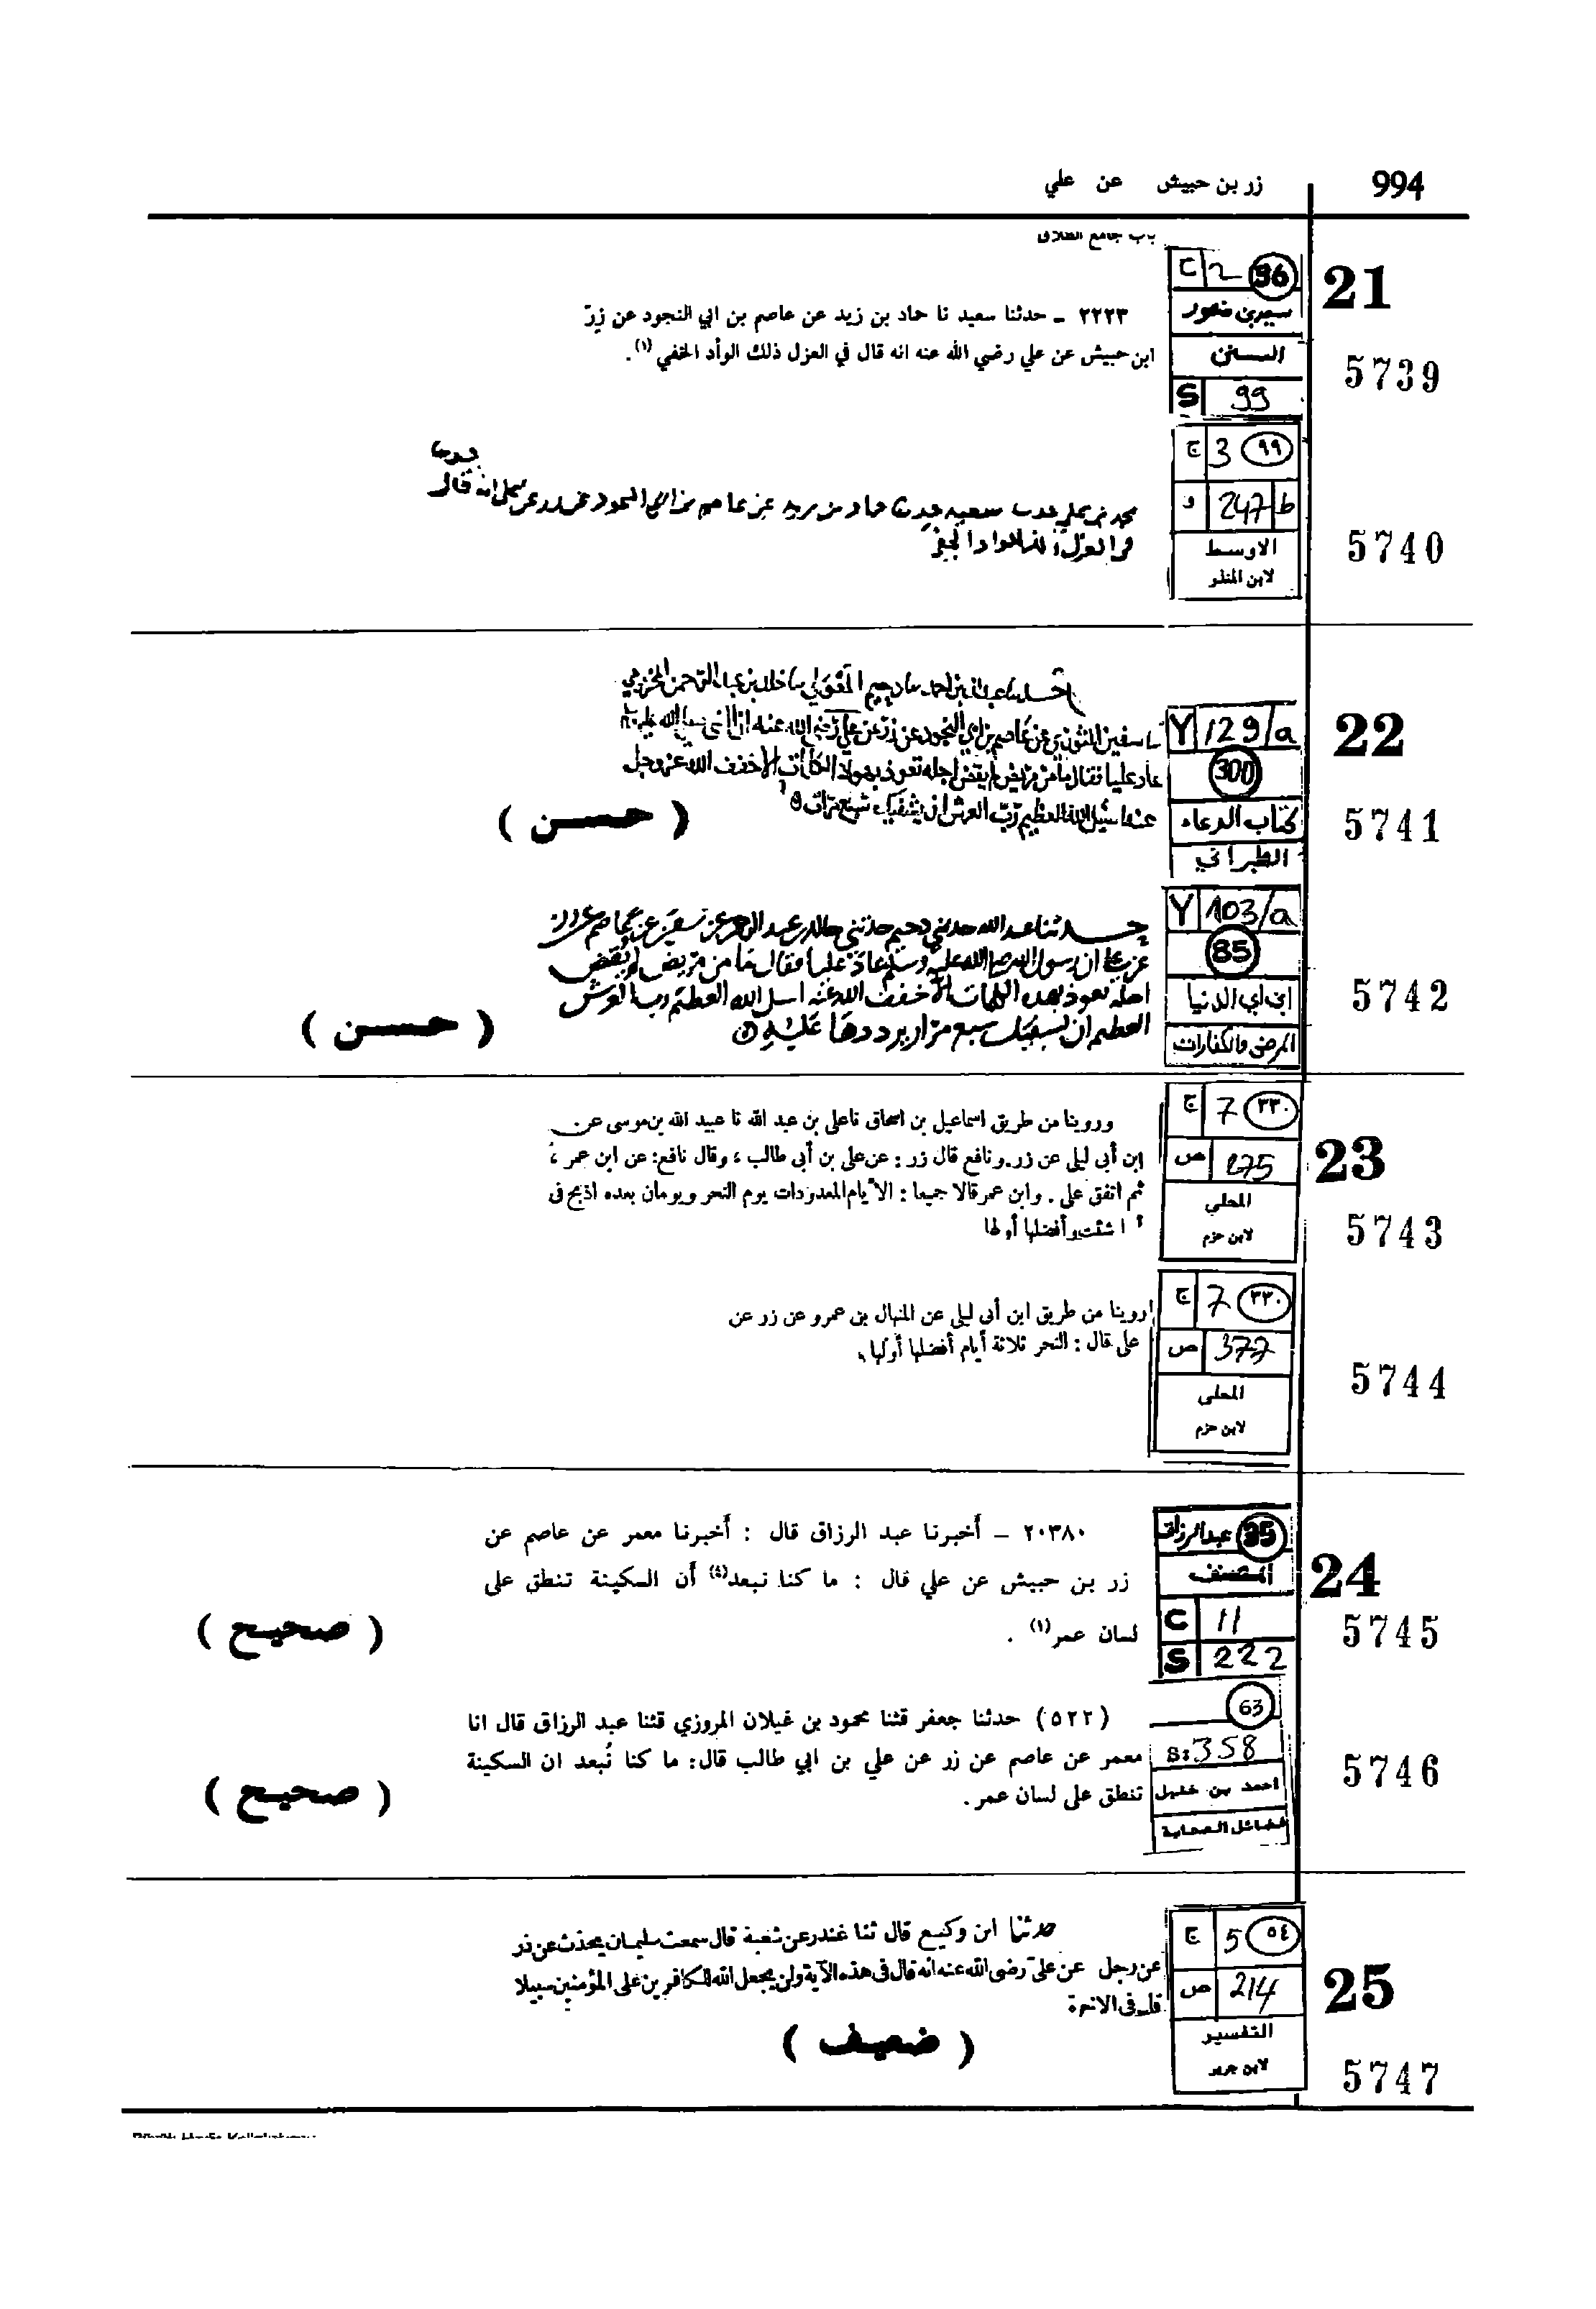 994
زر بن حبيش عن علي
باب جامع الطلاق
21
C 2 96
سعيد بن منصور
السنن
S 99
5739
٢٢٢٣ ـ حدثنا سعيد نا حماد بن زيد عن عاصم بن ابي النجود عن زِرّ
ابن حبيش عن علي رضي الله عنه انه قال في العزل ذلك الوأد الخفي (١).
ج 3 ٩٩
و 247 b
الاوسط
لابن المنذر
5740
محمد بن علي
سعيد
حماد بن زيد عن عاصم بن ابي النجود عن زر عن علي انه قال
في العزل
22
Y 129/a
300
كتاب الدعاء
الطبراني
5741
خالد بن عبد الرحمن المخزومي
سفين الثوري عن عاصم بن ابي النجود عن زر عن علي رضي الله عنه ان النبي صلى الله عليه
عاد عليا فقال ما من مريض لم يقض اجله تعوذ بهولا الكلمات الا خفف الله عز وجل
عنه اسئل الله العظيم رب العرش ان يشفيك سبع مرات
( حسن )
Y 103/a
85
ابن ابي الدنيا
المرضى والكفارات
5742
حدثنا عبد الله حدثني دحيم حدثني خالد بن عبد الرحمن عن سفين عن عاصم عن زر
عن علي ان رسول الله صلى الله عليه وسلم عاد عليا فقال ما من مريض لم يقض
اجله تعوذ بهذه الكلمات الا خفف الله عنه اسل الله العظيم رب العرش
العظيم ان يشفيك سبع مرار يرددها عليه
( حسن )
23
ج 7 ٣٣٠
ص 275
المحلي
لابن حزم
5743
وروينا من طريق اسماعيل بن اسحاق نا على بن عبد الله نا عبيد الله بن موسى عن
ابن أبى ليلى عن زر. ونافع قال زر : عن على بن أبى طالب ، وقال نافع: عن ابن عمر ،
ثم اتفق على . وابن عمر قالا جميعا : الأيام المعدودات يوم النحر ويومان بعده اذبح فى
ا شئت وأفضلها أولها
ج 7 ٣٣٠
ص 377
المحلى
لابن حزم
5744
روينا من طريق ابن أبى ليلى عن المنهال بن عمرو عن زر عن
على قال : النحر ثلاثة أيام أفضلها أولها ،
24
عبد الرزاق 35
المصنف
C 11
S 222
5745
٢٠٣٨٠ – أخبرنا عبد الرزاق قال : أخبرنا معمر عن عاصم عن
زر بن حبيش عن علي قال : ما كنا نبعد(٤) أن السكينة تنطق على
لسان عمر(١) .
( صحيح )
63
S: 358
احمد بن حنبل
فضائل الصحابة
5746
(٥٢٢) حدثنا جعفر قثنا محمود بن غيلان المروزي قثنا عبد الرزاق قال انا
معمر عن عاصم عن زر عن علي بن ابي طالب قال: ما كنا نُبعد ان السكينة
تنطق على لسان عمر.
( صحيح )
25
ج 5 ٥٤
ص 214
التفسير
لابن جرير
5747
حدثنا ابن وكيع قال ثنا غندر عن شعبة قال سمعت سليمان يحدث عن ذر
عن رجل عن علي رضى الله عنه انه قال فى هذه الآية ولن يجعل الله للكافرين على المؤمنين سبيلا
قال فى الآخرة
( ضعيف )